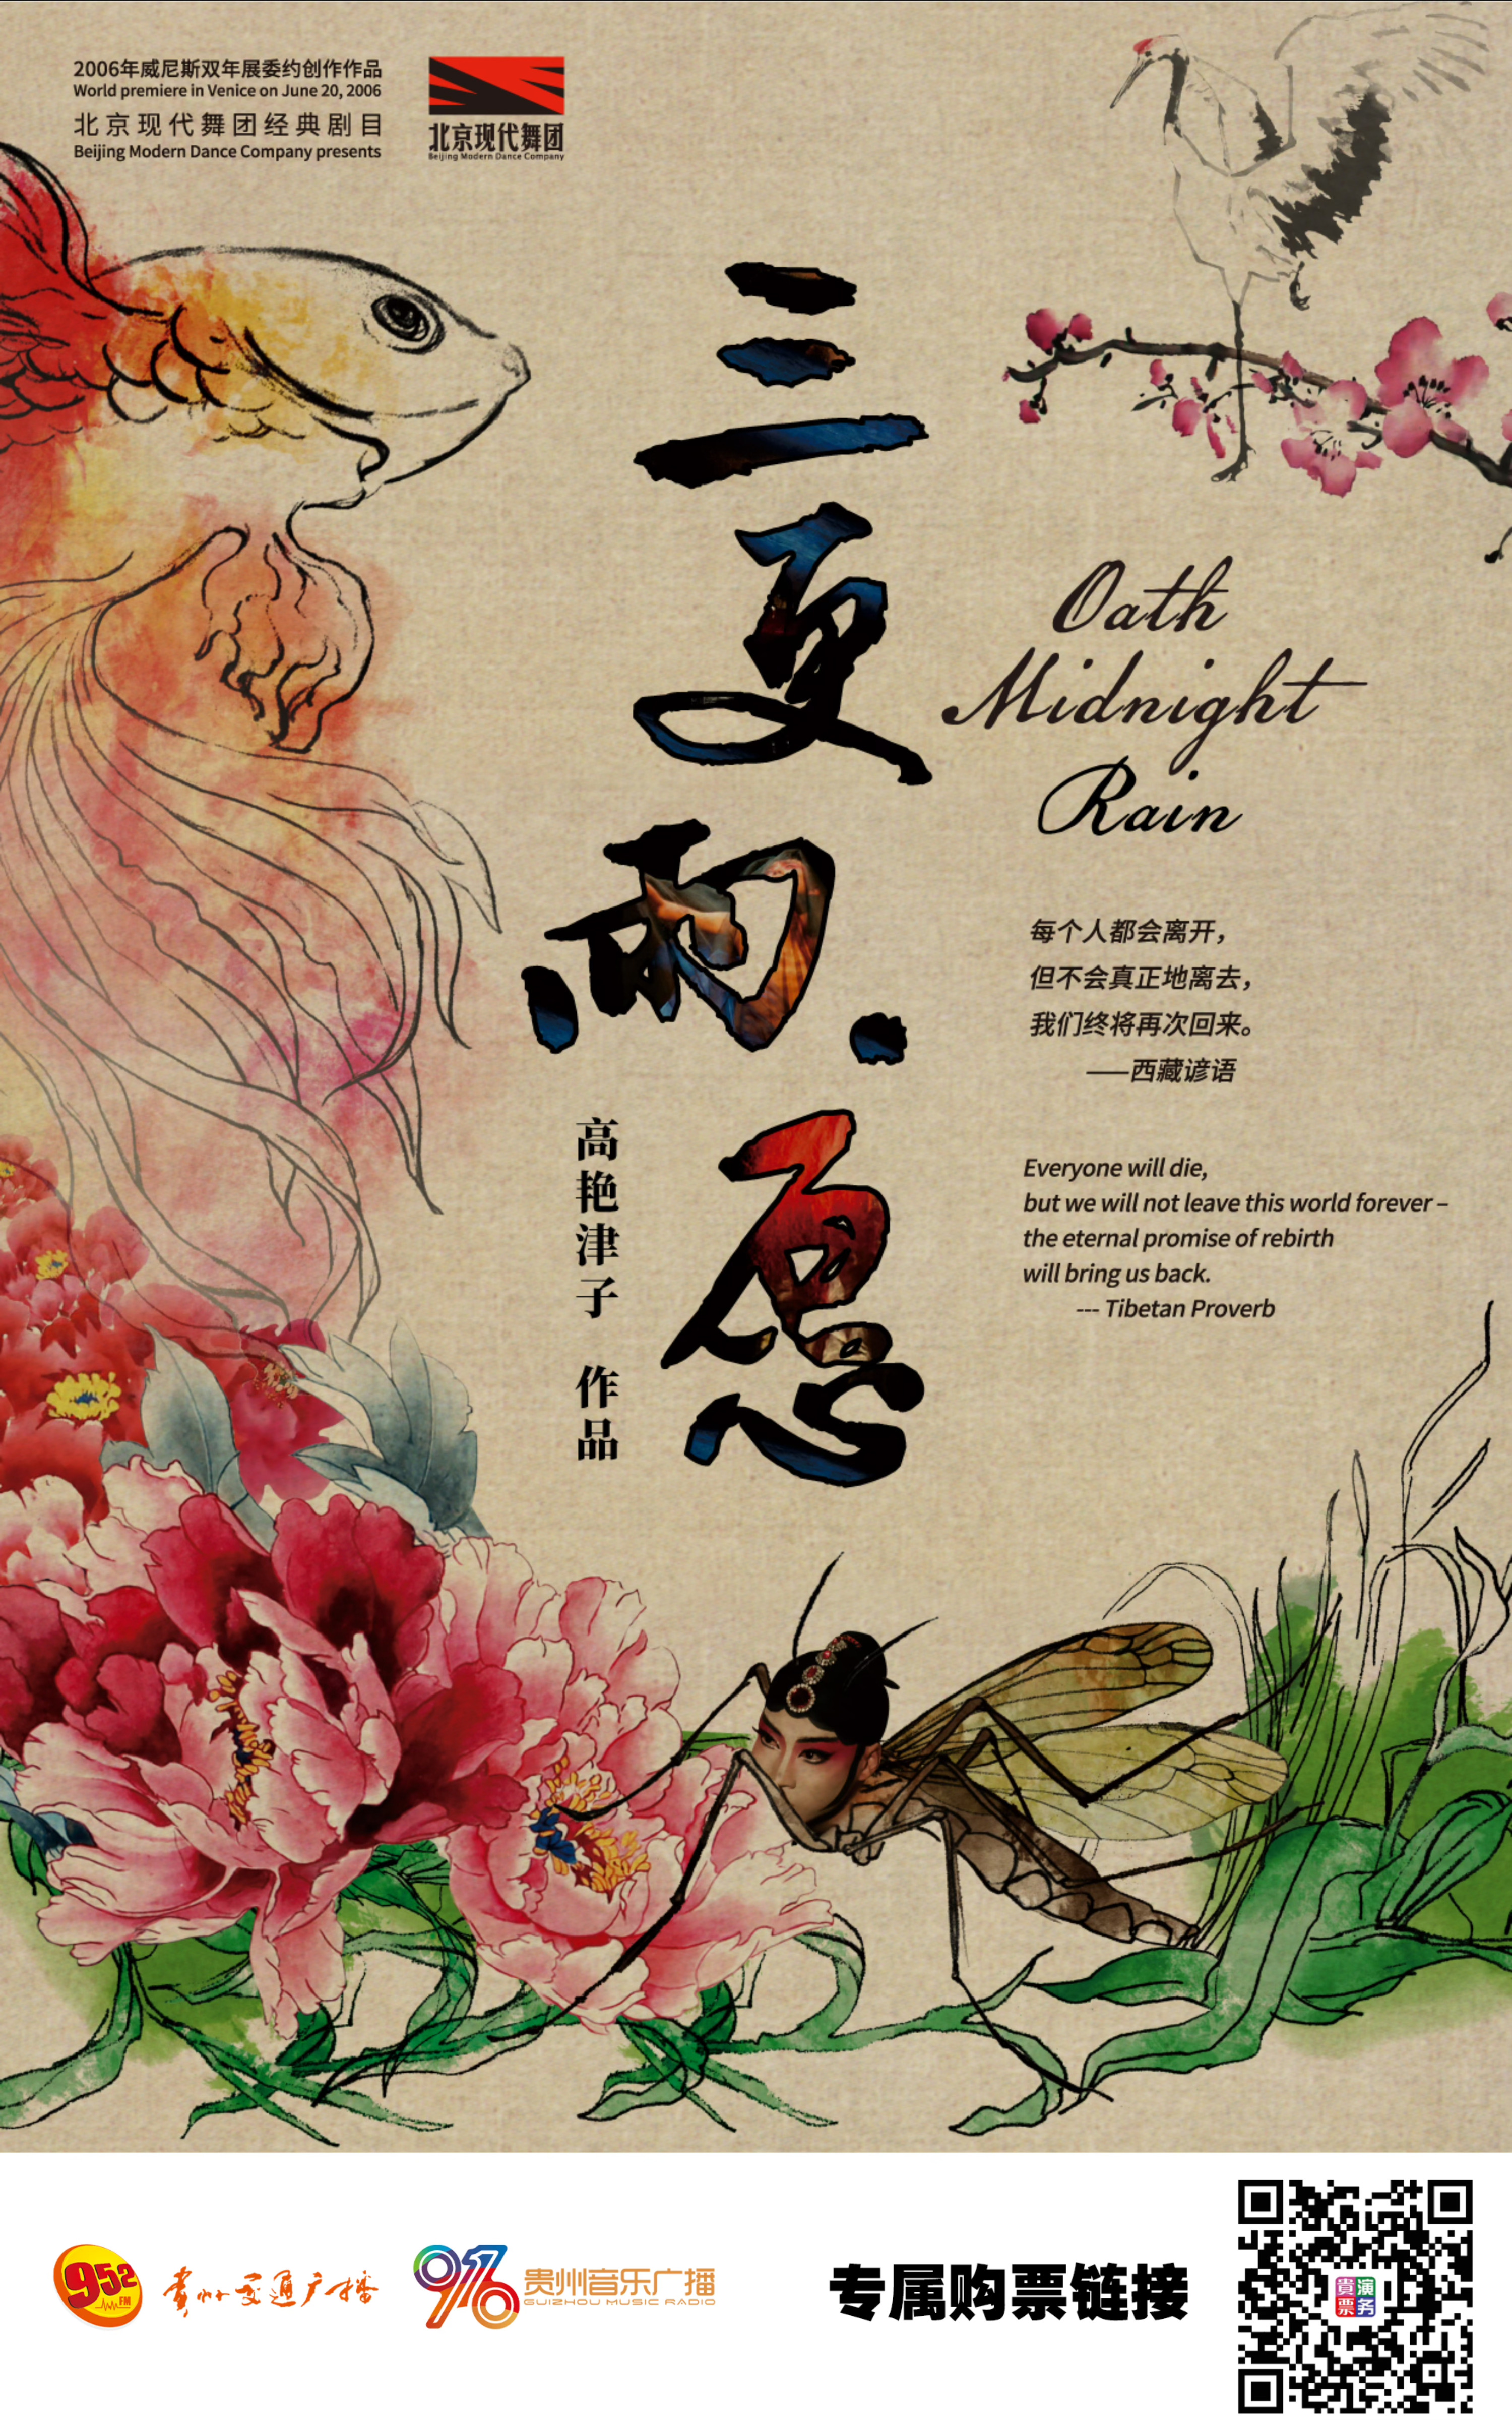 2006年威尼斯双年展委约创作作品
World premiere in Venice on June 20, 2006
北京现代舞团经典剧目
Beijing Modern Dance Company presents
北京现代舞团
Beijing Modern Dance Company
三更雨·愿
Oath
Midnight
Rain
每个人都会离开，
但不会真正地离去，
我们终将再次回来。
——西藏谚语
高艳津子 作品
Everyone will die,
but we will not leave this world forever –
the eternal promise of rebirth
will bring us back.
--- Tibetan Proverb
952
FM
贵州交通广播
916
贵州音乐广播
GUIZHOU MUSIC RADIO
专属购票链接
貴演
票务